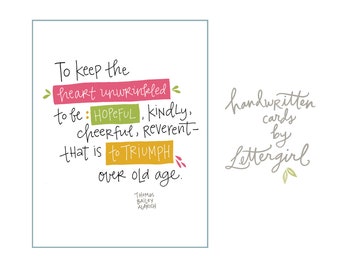 To keep the
heart unwrinkled
to be: HOPEFUL, kindly,
cheerful, reverent-
that is to TRIUMPH
over old age.
THOMAS
BAILEY
ALDRICH
handwritten
cards
by
Lettergirl